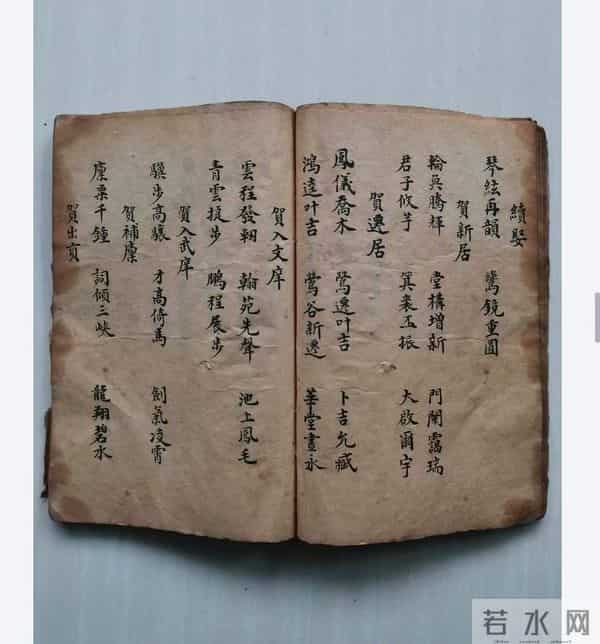 續娶
琴絃再韻 鸞鏡重圓
賀新居
輪奐騰輝 堂構增新 門閭靄瑞
君子攸芋 箕裘丕振 大啟爾宇
賀遷居
鳳儀喬木 鶯遷叶吉 卜吉允臧
鴻逵叶吉 鶯谷新遷 華堂晝永
賀入文庠
雲程發軔 翰苑先聲 池上鳳毛
青雲捷步 鵬程展步
賀入武庠
驥步高驤 才高倚馬 劍氣凌霄
賀補廩
廩粟千鍾 詞傾三峽 龍翔碧水
賀出貢
若水网